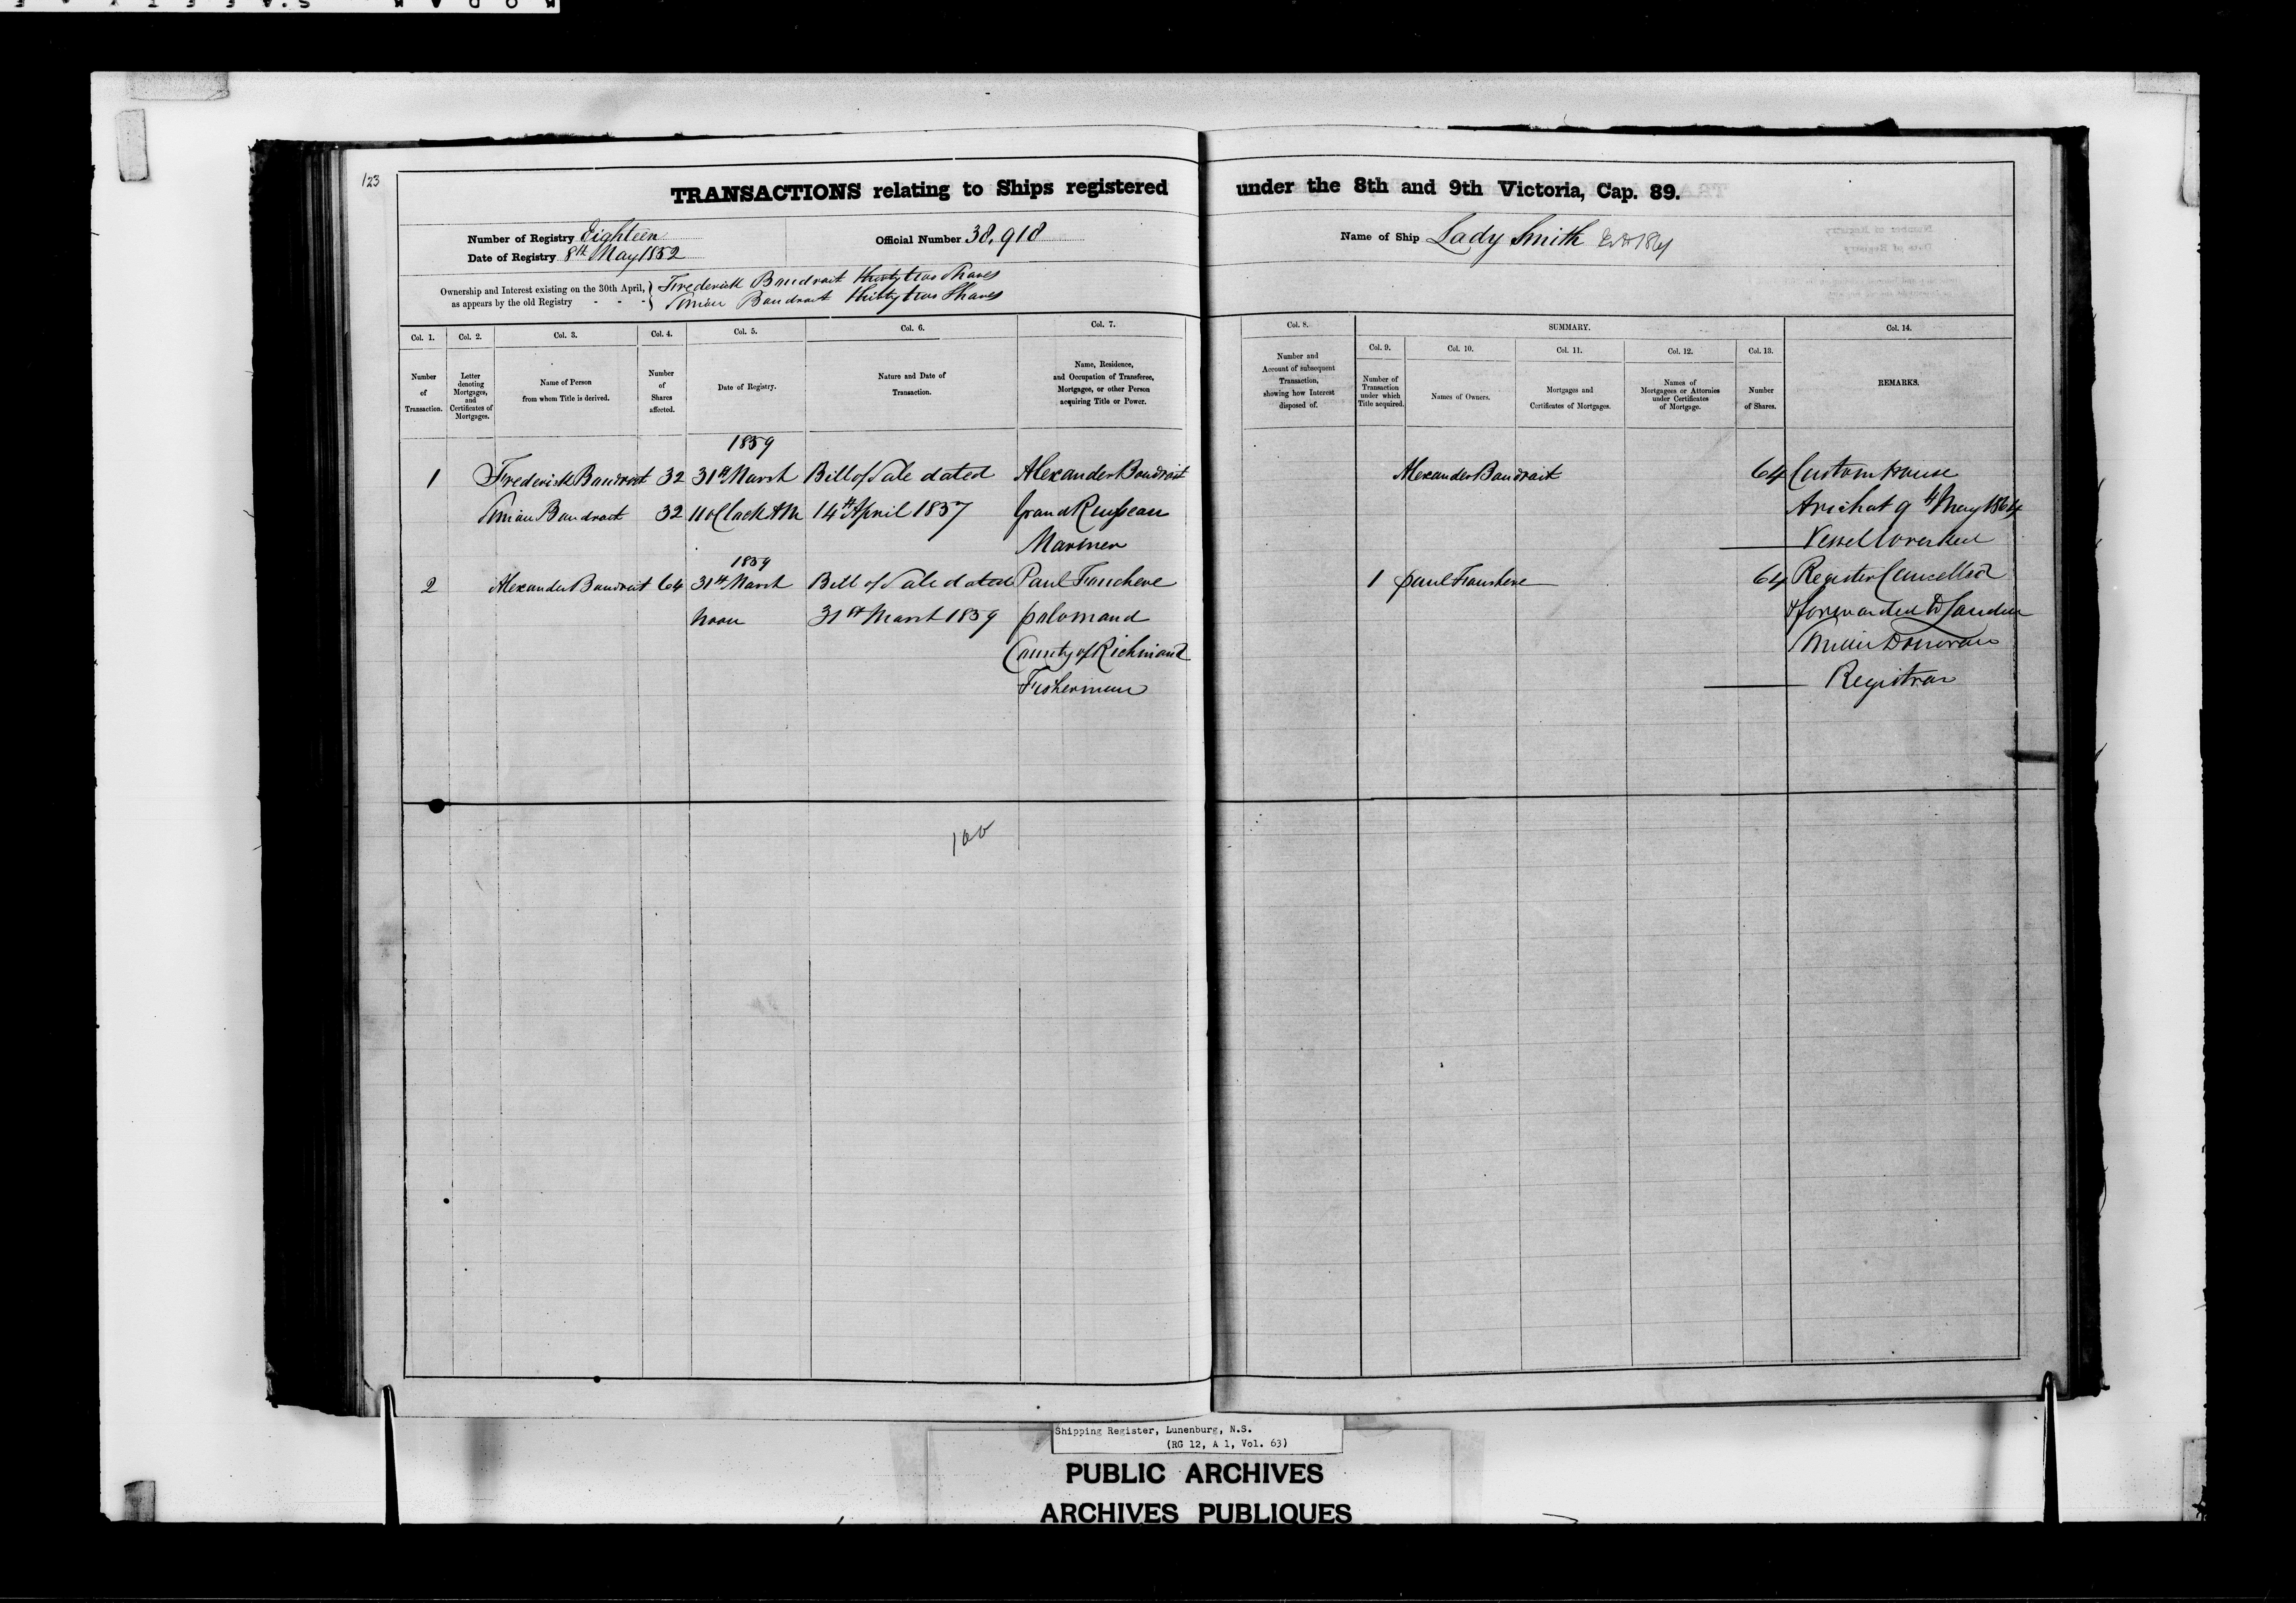 123
TRANSACTIONS relating to Ships registered under the 8th and 9th Victoria, Cap. 89.
Number of Registry Eighteen
Date of Registry 8th May 1852
Official Number 38,918
Name of Ship Lady Smith
Ownership and Interest existing on the 30th April, as appears by the old Registry
Frederick Baudroit Thirty two Shares
Simian Baudroit thirty two Shares
Col. 1. Number of Transaction.
Col. 2. Letter denoting Mortgages, and Certificates of Mortgages.
Col. 3. Name of Person from whom Title is derived.
Col. 4. Number of Shares affected.
Col. 5. Date of Registry.
Col. 6. Nature and Date of Transaction.
Col. 7. Name, Residence, and Occupation of Transferee, Mortgagee, or other Person acquiring Title or Power.
Col. 8. Number and Account of subsequent Transaction, showing how Interest disposed of.
SUMMARY.
Col. 9. Number of Transaction under which Title acquired.
Col. 10. Names of Owners.
Col. 11. Mortgages and Certificates of Mortgages.
Col. 12. Names of Mortgagees or Attornies under Certificates of Mortgage.
Col. 13. Number of Shares.
Col. 14. REMARKS.
1859
1 Frederick Baudroit 32 31st March Bill of Sale dated Alexander Baudroit
Simian Baudroit 32 11 oClock AM 14th April 1857 Grand Ruisseau
Mariner
1859
2 Alexander Baudroit 64 31st March Bill of Sale dated Paul
Noon 31st March 1859
County of Richmond
Fisherman
Alexander Baudroit 64
1 Paul 64
Custom House
Arichat 9th May 1864
Vessel Wrecked
Register Cancelled
& forwarded to London
Donovan
Registrar
100
Shipping Register, Lunenburg, N.S.
(RG 12, A 1, Vol. 63)
PUBLIC ARCHIVES
ARCHIVES PUBLIQUES